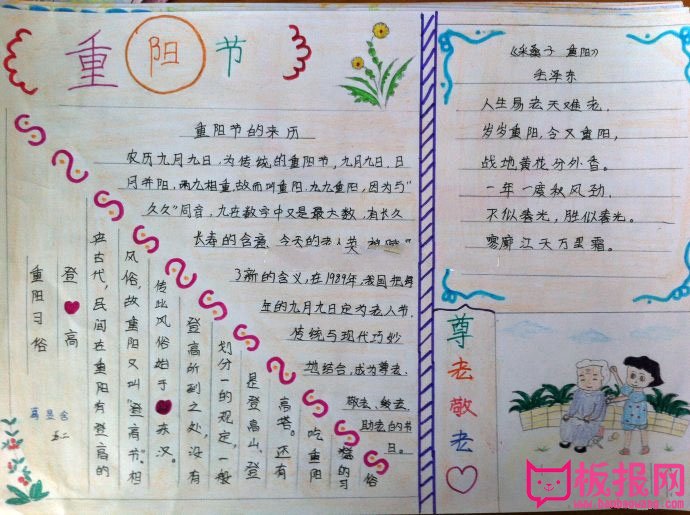 重阳节
重阳节的来历
农历九月九日，为传统的重阳节，九月九日，日
月并阳，两九相重，故而叫重阳，九九重阳，因为与“
久久”同音，九在数字中又是最大数，有长久
长寿的含意，今天的老人
了新的含义，在1989年，我国把每
年的九月九日定为老人节，
传统与现代巧妙
地结合，成为尊老、
敬老、爱老、
助老的节
日。
重阳习俗
登高
在古代，民间在重阳有登高的
风俗，故重阳又叫“登高节”。相
传此风俗始于东汉。
登高所到之处，没有
划分一的规定，一般
是登高山、登
高塔。还有
吃重阳
糕的习
俗
五二
《采桑子 重阳》
毛泽东
人生易老天难老，
岁岁重阳，今又重阳，
战地黄花分外香。
一年一度秋风劲，
不似春光，胜似春光。
寥廓江天万里霜。
尊老敬老
板报网
www.banbaowang.com